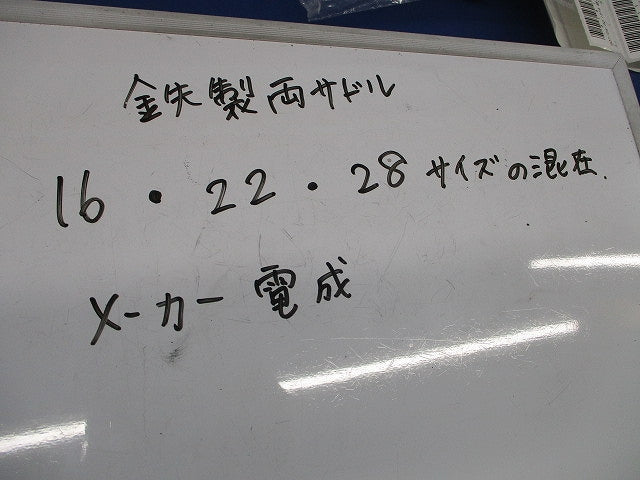 鉄製両サドル
16・22・28サイズの混在.
メーカー電成